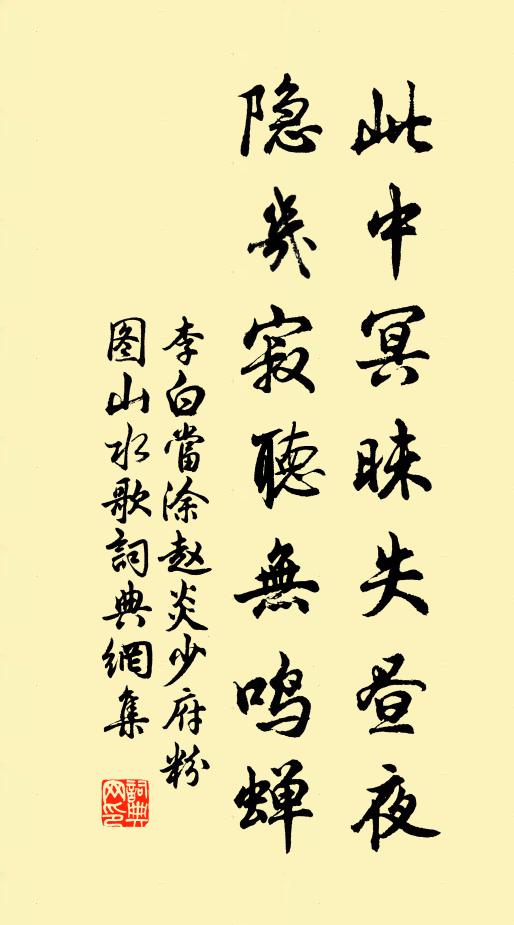 此中冥昧失昼夜
隐几寂聽無鸣蝉
李白當涂赵炎少府粉
图山水歌詞典網集
詞典
网印